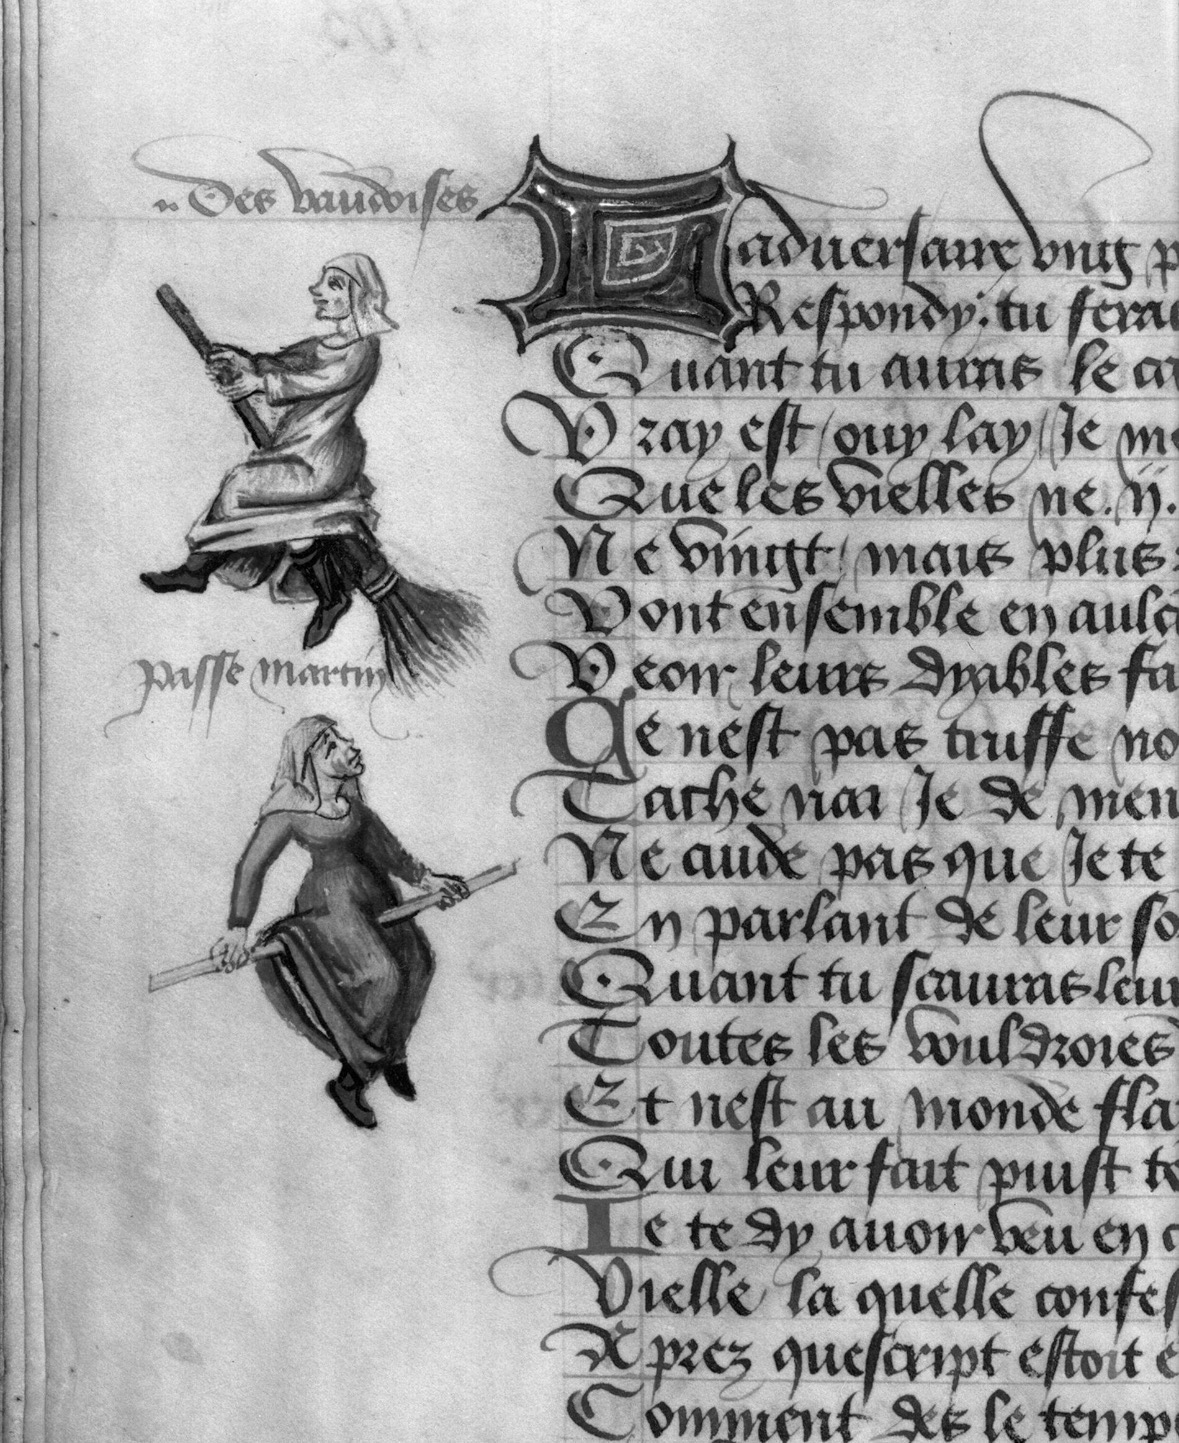 des vaudoises
passe martin
L adversaire ung p
Respondy: tu seras
Quant tu auras le ca
Vray est / ouy lay / Je me
Que les vielles ne .ij.
Ne vingt / mais plus
Vont ensemble en aulc
Veoir leurs dyables fa
Ce nest pas truffe no
Tache nai Je de men
Ne cuide pas que Je te
En parlant de leur so
Quant tu scauras leur
Toutes les vouldroies
Et nest au monde fla
Qui leur fait puist te
Ie te dy avoir veu en c
Vielle la quelle confes
Aprez quescript estoit e
Comment des le temps